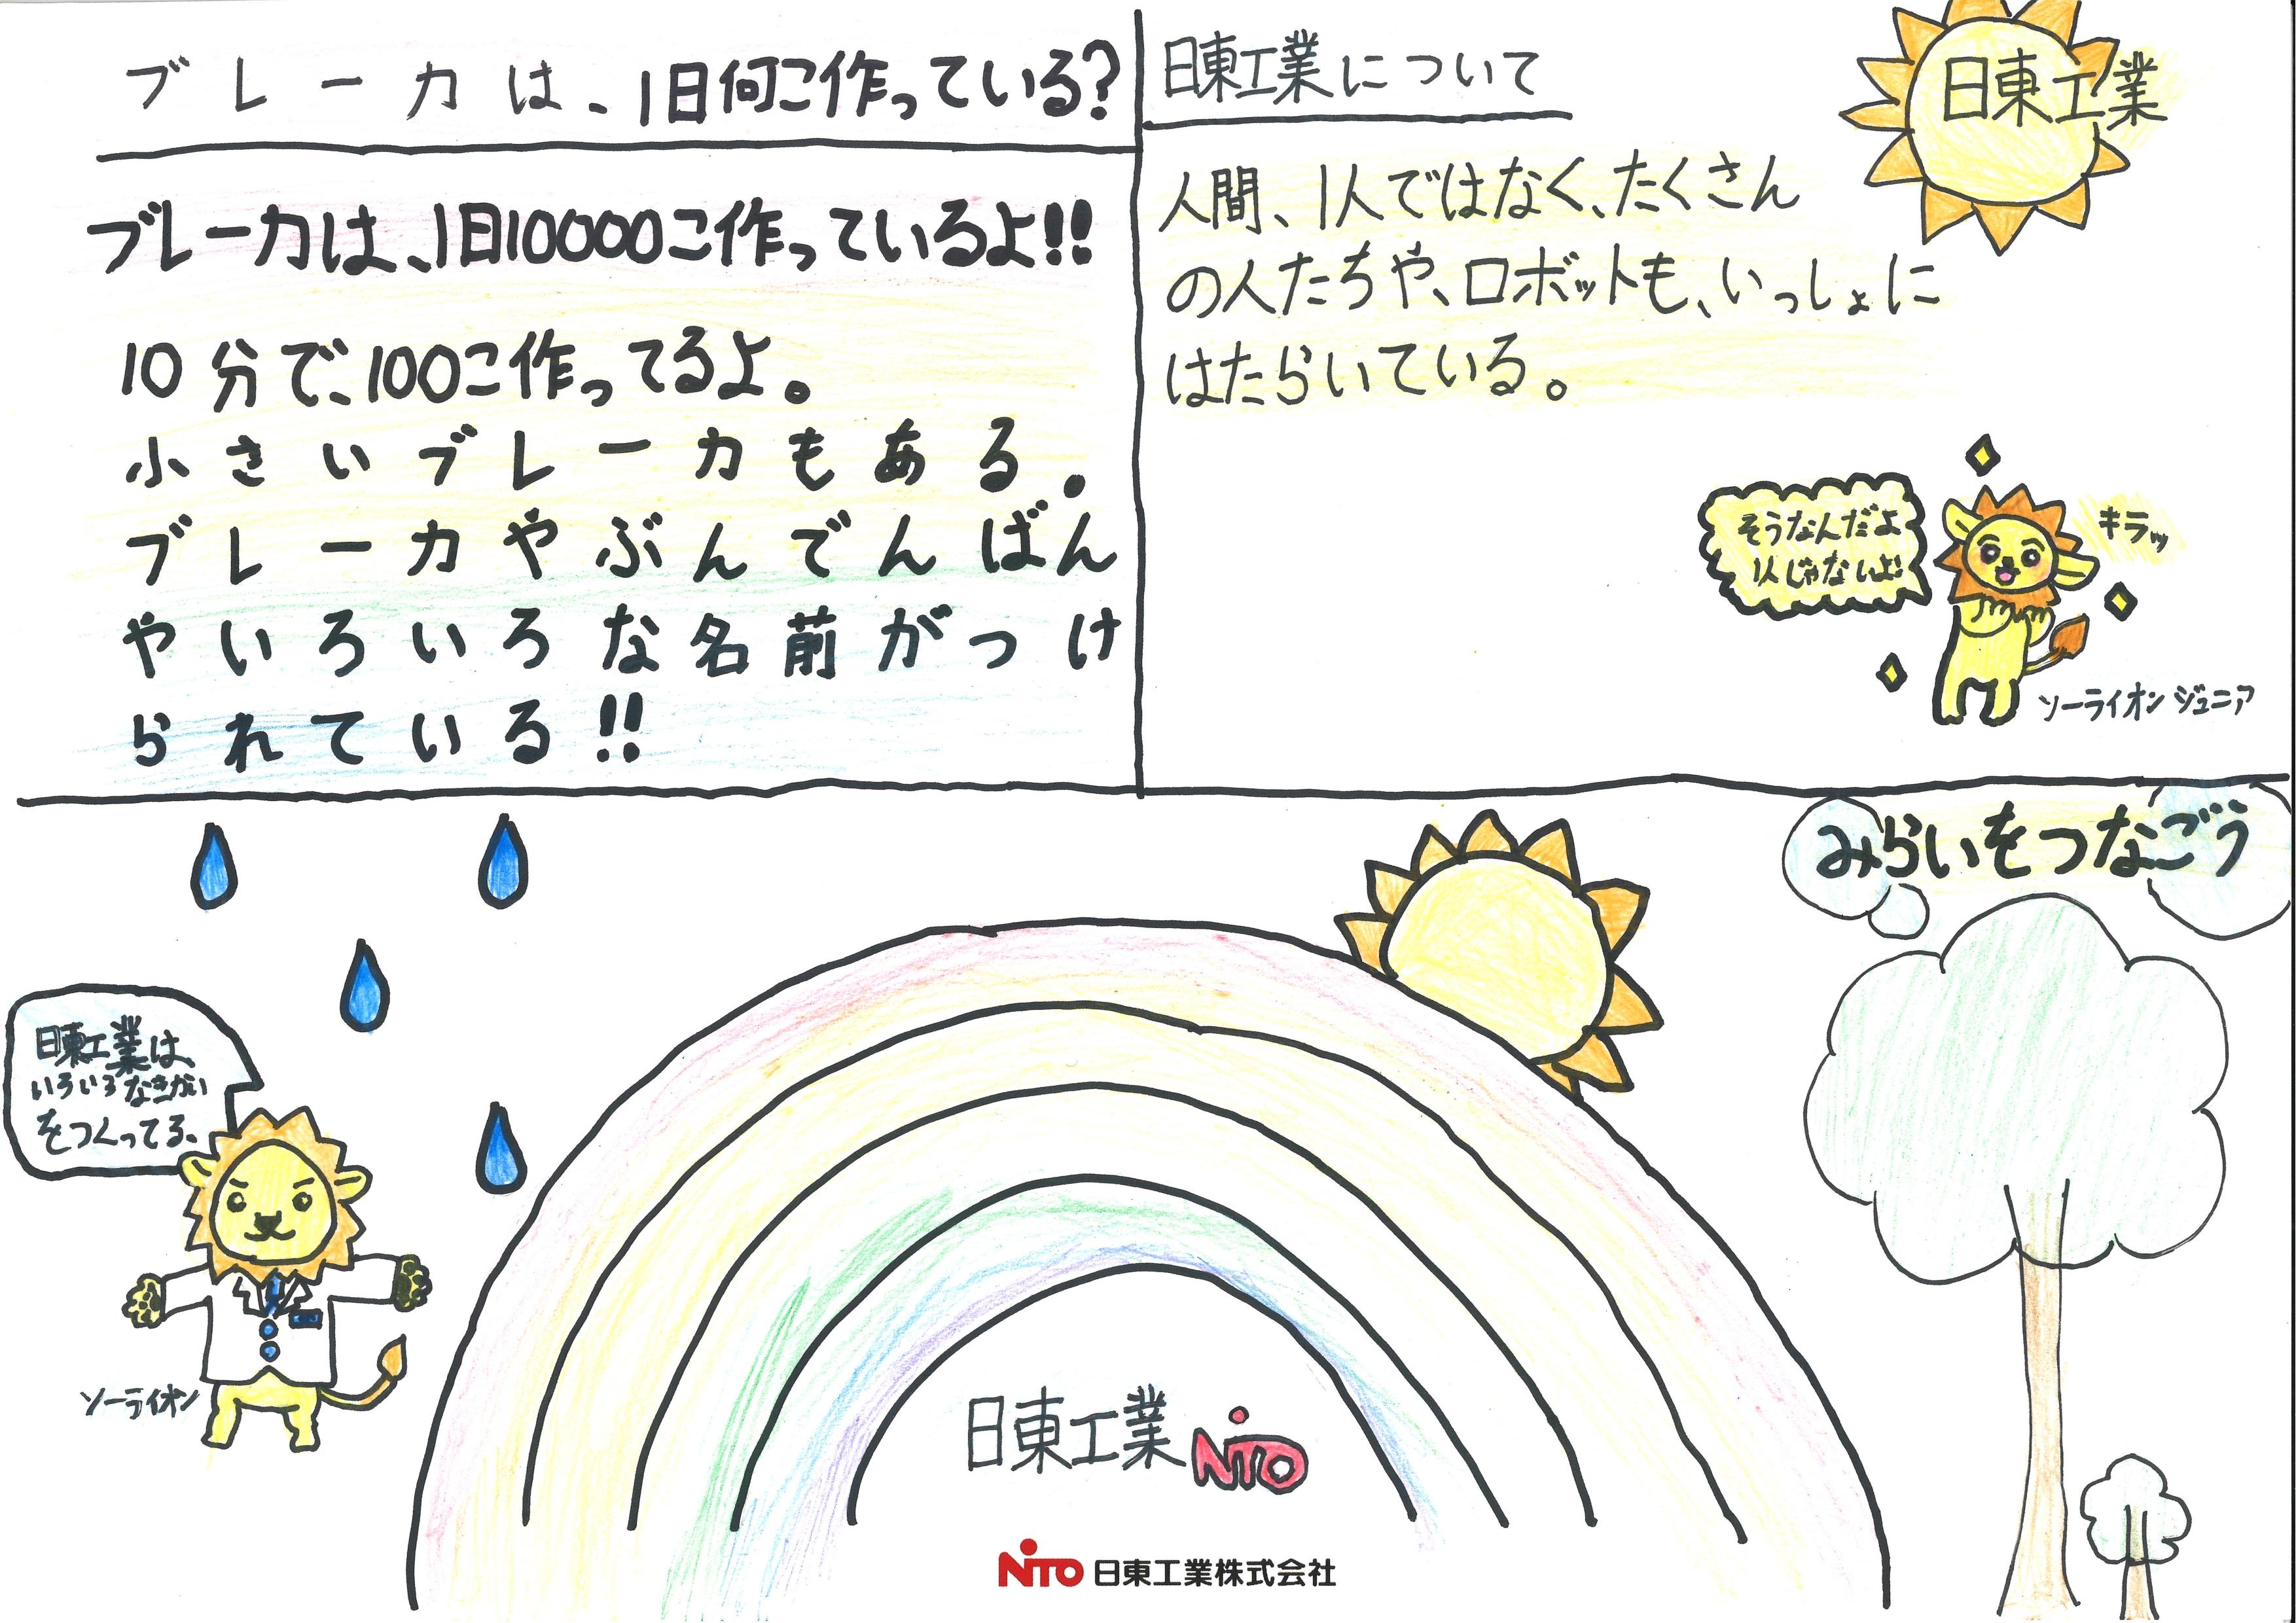 ブレーカは、1日何こ作っている?
ブレーカは、1日10000こ作っているよ!!
10分で、100こ作ってるよ。
小さいブレーカもある。
ブレーカやぶんでんばん
やいろいろな名前がつけ
られている!!
日東工業について
日東工業
人間、1人ではなく、たくさん
の人たちや、ロボットも、いっしょに
はたらいている。
そうなんだよ
1人じゃないよ!
キラッ
ソーライオンジュニア
みらいをつなごう
日東工業は、
いろいろなきかい
をつくってる。
ソーライオン
日東工業 NITO
NITO 日東工業株式会社